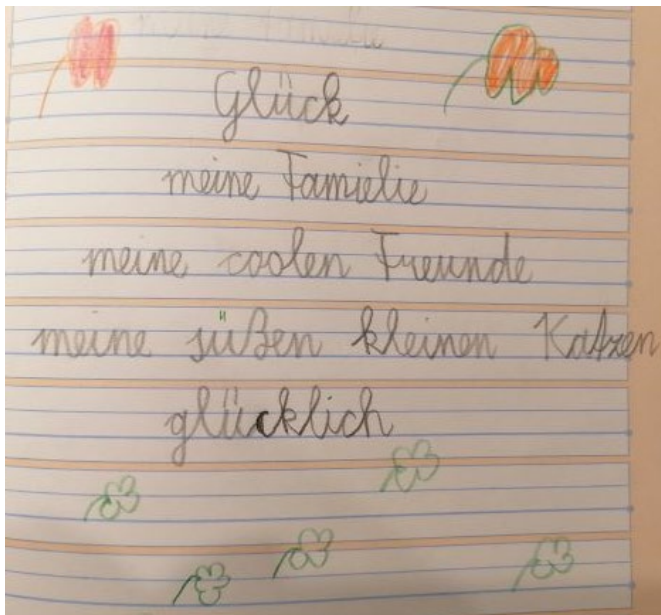 Glück
meine Famielie
meine coolen Freunde
meine süßen kleinen Katzen
glücklich